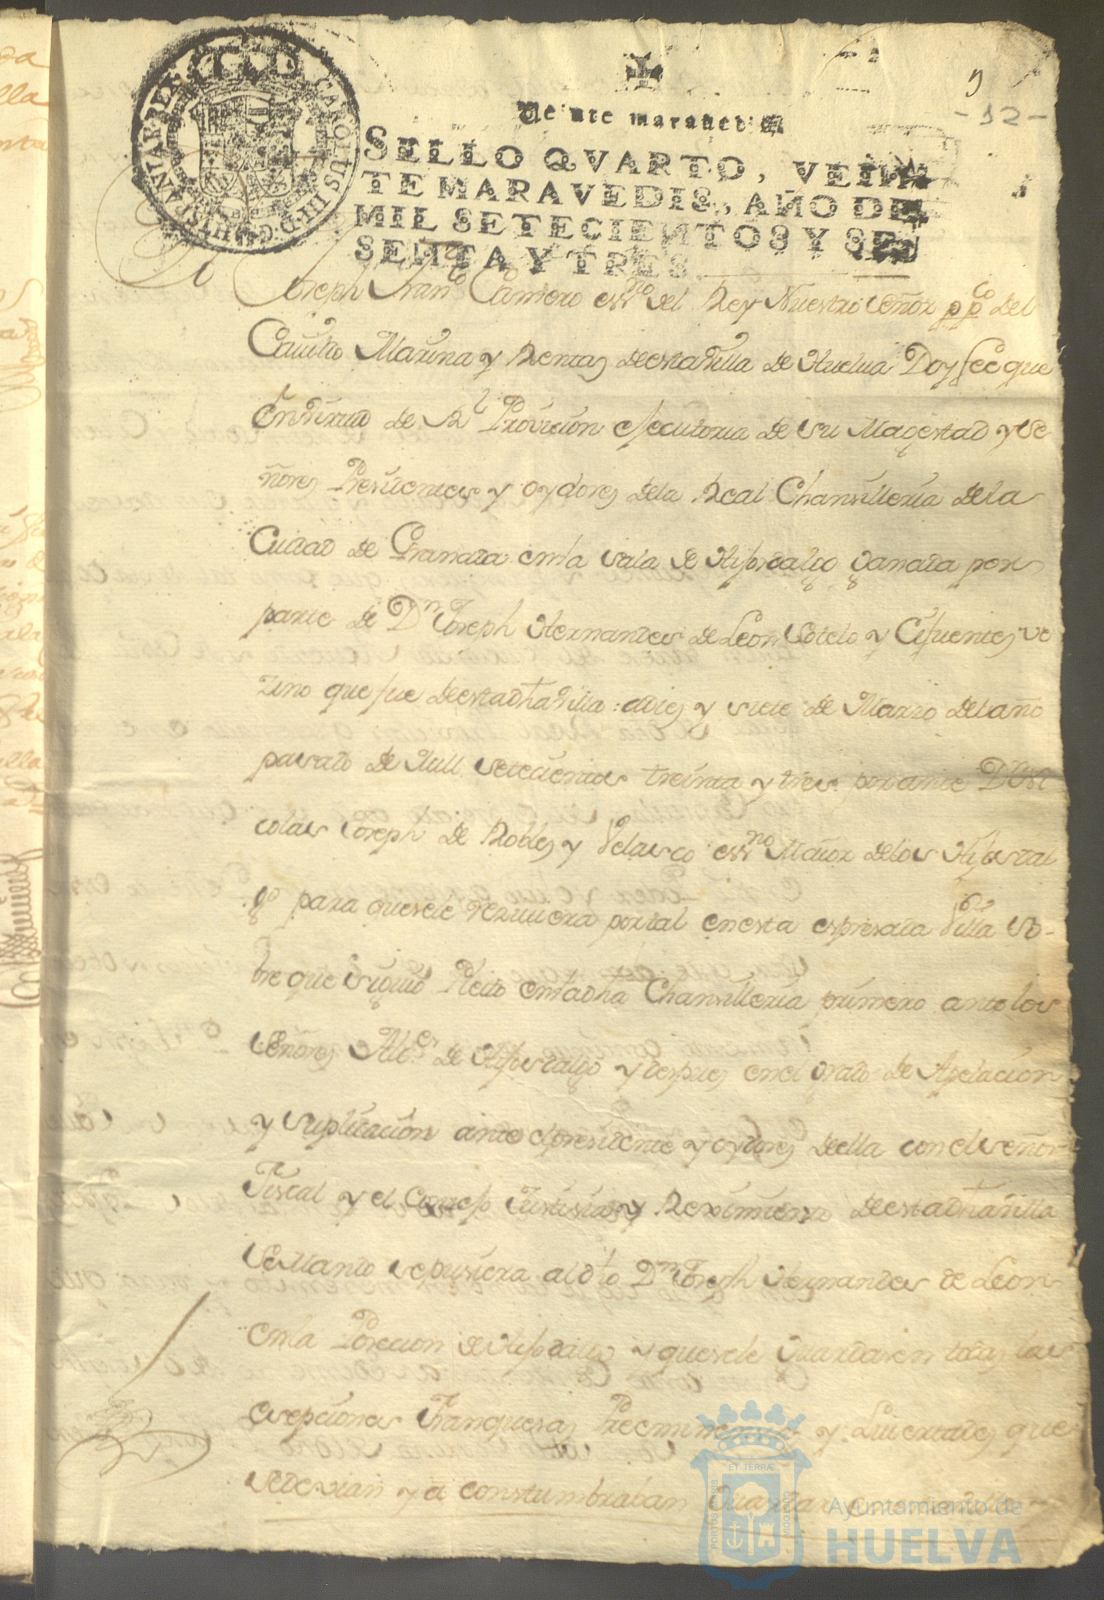 CAROLUS III D G HISPANIAR REX
9
-12-
Veinte maravedis
SELLO QVARTO, VEIN
TE MARAVEDIS, AÑO DE
MIL SETECIENTOS Y SE
SENTA Y TRES.
Joseph Fran.co Carriero ess.no del Rey Nuestro señor pp.co del
Cavildo Marina y Rentas desta Villa de Huelva Doy fee que
En virtud de R.l Provicion ejecutoria de su Magestad y Se
ñores Presidentes y oydores de la Real Chansilleria de la
Ciudad de Granada en la sala de Hijosdalgo ganada por
parte de D.n Joseph Hernandes de Leon Sotelo y Cifuentes ve
zino que fue desta dha Villa: a dies y siete de Marzo del año
pasado de Mill setecientos treinta y tres por ante D.n Ni
colas Joseph de Robles y Velasco ess.no Maior de los Hijosdal
go para que se le resiviera por tal en esta espresada Villa so-
bre que siguio Pleito en la dha Chansilleria primero ante los
Señores Alc.es de Hijosdalgo y despues en el grado de Apelacion
y suplicacion ante el presidente y oydores della con el señor
Fiscal y el Consejo Justisia y Reximiento desta dha Villa
se Mando se pusiera al dho D.n Joseph Hernandes de Leon
en la Posecion de Hijodalgo y que se le Guardasen todas las
esepciones Franquesas Preeminencias y Livertades que
se devian y a constumbraban Guardar
PORTUS MARIS
ET TERRAE
CUSTODIA
Ayuntamiento de
HUELVA